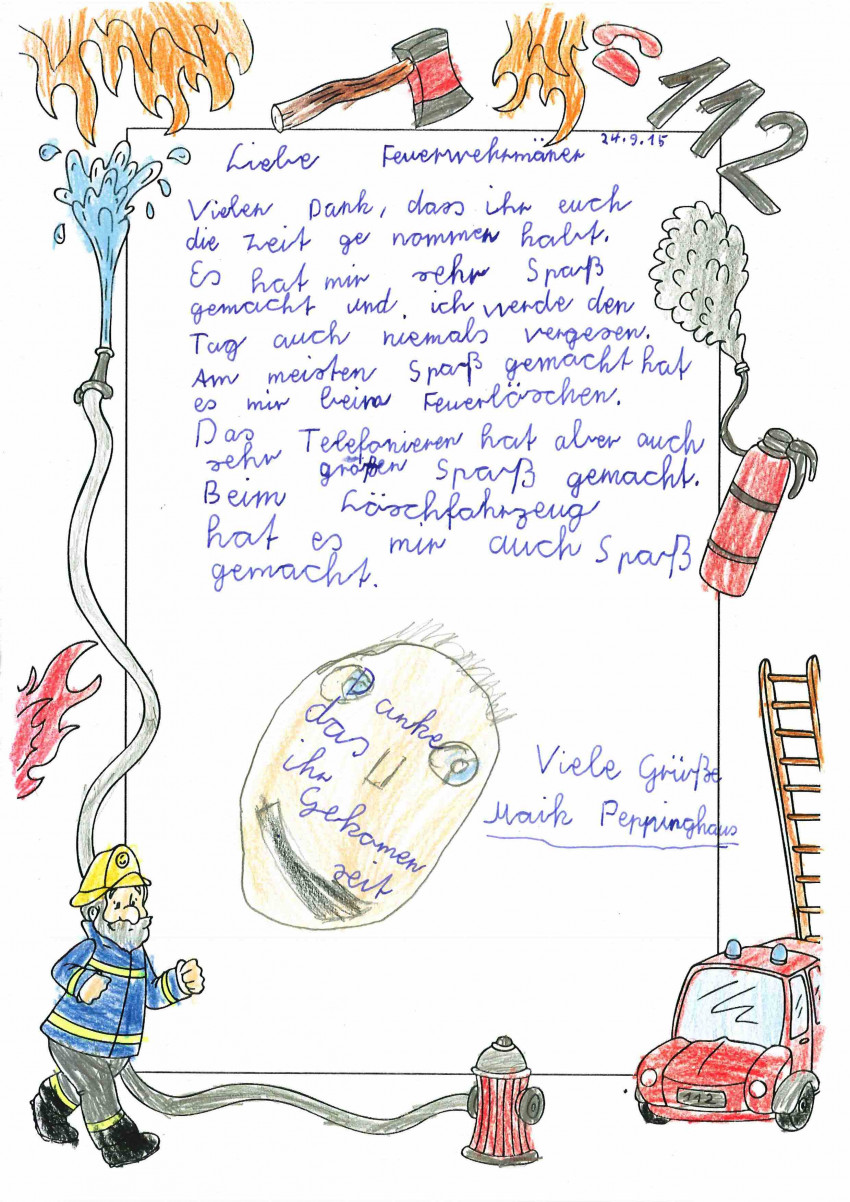 112
24.9.15
Liebe Feuerwehrmäner
Vielen Dank, dass ihr euch
die Zeit ge nommen habt.
Es hat mir sehr Spaß
gemacht und ich werde den
Tag auch niemals vergesen.
Am meisten Spaß gemacht hat
es mir beim Feuerlöschen.
Das Telefonieren hat aber auch
sehr größen Spaß gemacht.
Beim Löschfahrzeug
hat es mir auch Spaß
gemacht.
Danke
das
ihr
Gekomen
seit
Viele Grüße
Maik Peppinghaus
112